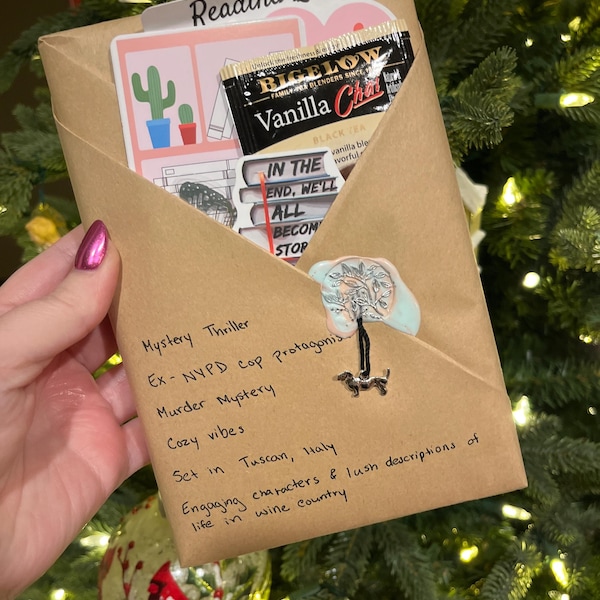 Reading
Unlock the freshness
BIGELOW
FAMILY TEA BLENDERS SINCE
Vanilla Chai
BLACK TEA
vanilla
IN THE
END, WE'LL
ALL
BECOM
STOR
Mystery Thriller
Ex-NYPD Cop Protagonis
Murder Mystery
Cozy vibes
Set in Tuscan, Italy
Engaging characters & lush descriptions of
life in wine country